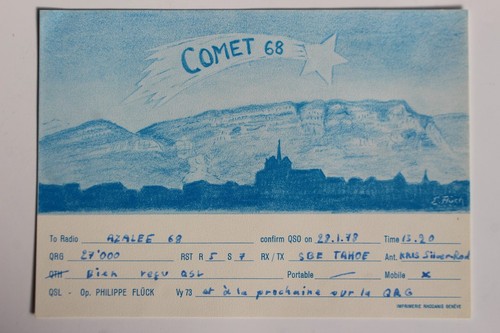 COMET 68
E. Flück
To Radio AZALEE 68 confirm QSO on 29.1.78 Time 15.20
QRG 27'000 RST R 5 S 7 RX / TX SBE TAHOE Ant. KRIS SilverRod
QTH Bien reçu QSL Portable — Mobile x
QSL - Op. PHILIPPE FLÜCK Vy 73 et à la prochaine sur la QRG
IMPRIMERIE RIVOSANDE GENÈVE